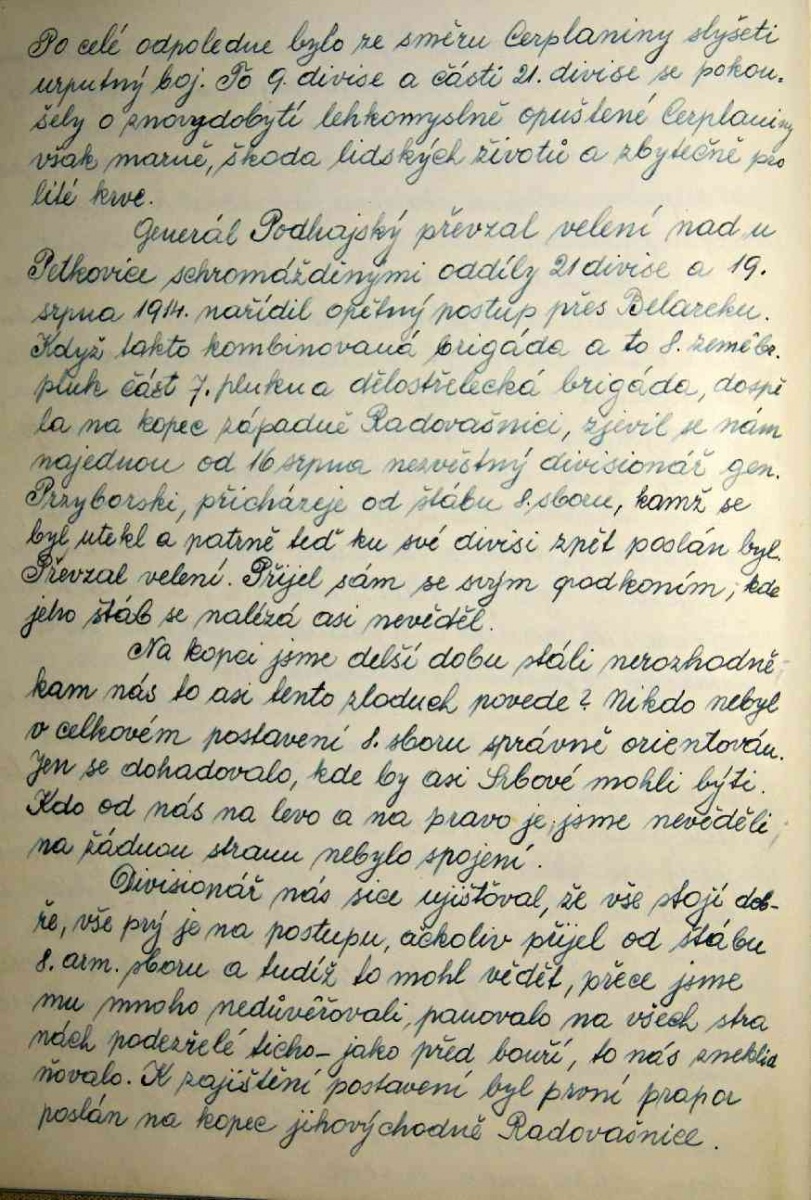 Po celé odpoledne bylo ze směru Cerplaniny slyšeti
urputný boj. To 9. divise a části 21. divise se pokou-
šely o znovydobytí lehkomyslně opuštěné Cerplaniny
však marně, škoda lidských životů a zbytečně pro
lité krve.
Generál Podhajský převzal velení nad u
Petkovice schromážděnymi oddíly 21 divise a 19.
srpna 1914. nařídil opětný postup přes Belareku.
Když takto kombinovaná brigáda a to 8. zeměbr.
pluk část 7. pluku a dělostřelecká brigáda, dospě
la na kopec západně Radovašnici, zjevil se nám
najednou od 16 srpna nezvěstný divisionář gen.
Przyborski, přicházeje od štábu 8. sboru, kamž se
byl utekl a patrně teď ku své divisi zpět poslán byl.
Převzal velení. Přijel sám se svým podkoním, kde
jeho štáb se nalézá asi nevěděl.
Na kopci jsme delší dobu stáli nerozhodně
kam nás to asi tento zloduch povede? Nikdo nebyl
v celkovém postavení 8. sboru správně orientován.
Jen se dohadovalo, kde by asi Srbové mohli býti.
Kdo od nás na levo a na pravo je, jsme nevěděli,
na žádnou stranu nebylo spojení.
Divisionář nás sice ujišťoval, že vše stojí dob-
ře, vše prý je na postupu, ačkoliv přijel od štábu
8. arm. sboru a tudíž to mohl vědět, přece jsme
mu mnoho nedůvěřovali, panovalo na všech stra
nách podezřelé ticho - jako před bouří, to nás zneklid
ňovalo. K zajištění postavení byl první prapor
poslán na kopec jihovýchodně Radovašnice.